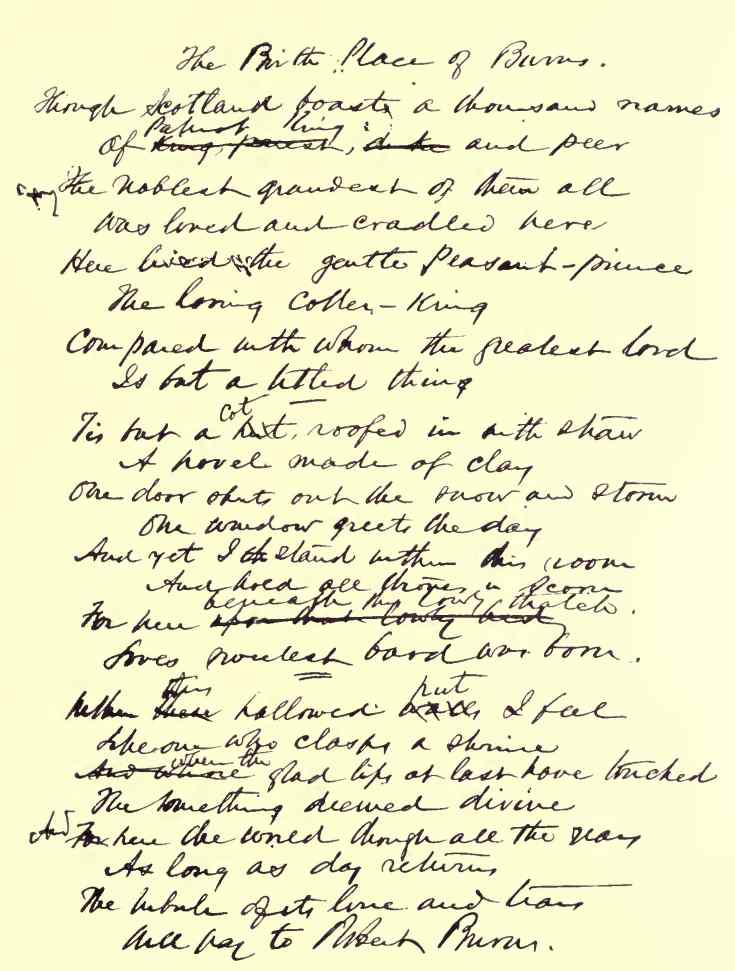 The Birth Place of Burns.
Though Scotland boasts a thousand names
Patriot King
Of King, priest, and peer
The noblest grandest of them all
Was loved and cradled here
Here lived the gentle Peasant-prince
The loving Cotter-King
Compared with whom the greatest lord
Is but a titled thing
cot
Tis but a hut, roofed in with straw
A hovel made of clay
One door shuts out the snow and storm
One window greets the day
And yet I stand within this room
And hold all thrones in scorn
beneath this lowly thatch.
For here upon that lowly bed
Loves sweetest bard was born.
this hut
Within these hallowed walls I feel
Like one who clasps a shrine
when the
And whose glad lips at last have touched
The something deemed divine
And
For here the world though all the years
As long as day returns
The tribute of its love and tears
Will pay to Robert Burns.